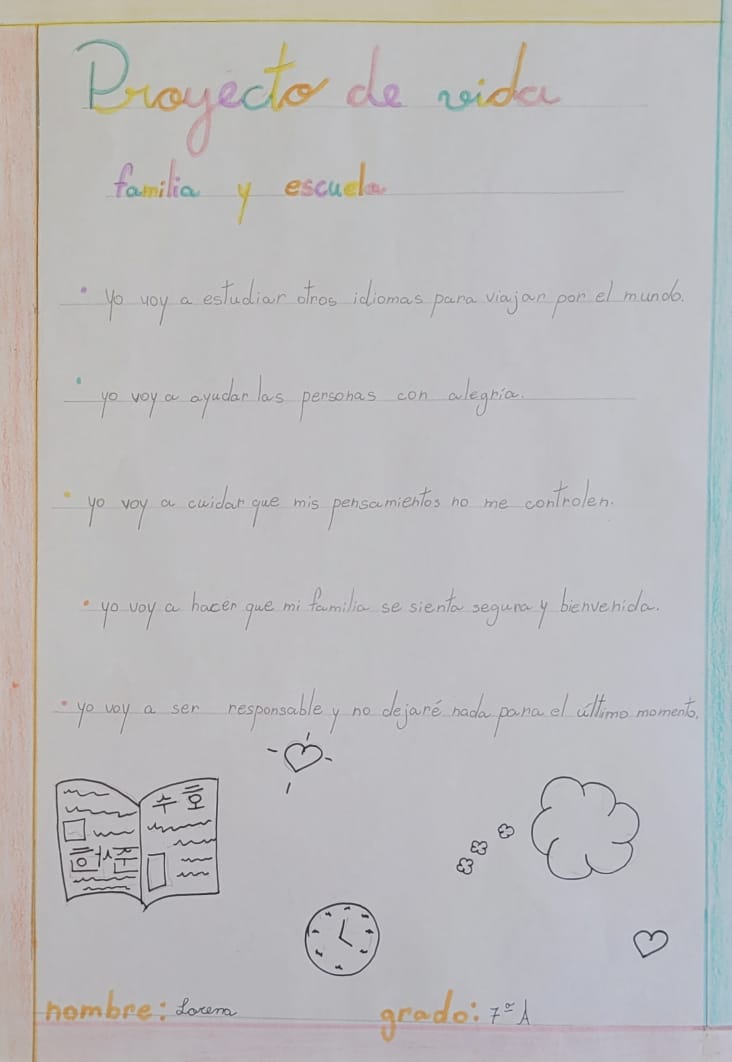 Proyecto de vida
familia y escuela
• yo voy a estudiar otros idiomas para viajar por el mundo.
• yo voy a ayudar las personas con alegría.
• yo voy a cuidar que mis pensamientos no me controlen.
• yo voy a hacer que mi familia se sienta segura y bienvenida.
• yo voy a ser responsable y no dejaré nada para el último momento.
수호
nombre: Lorena grado: 7º A